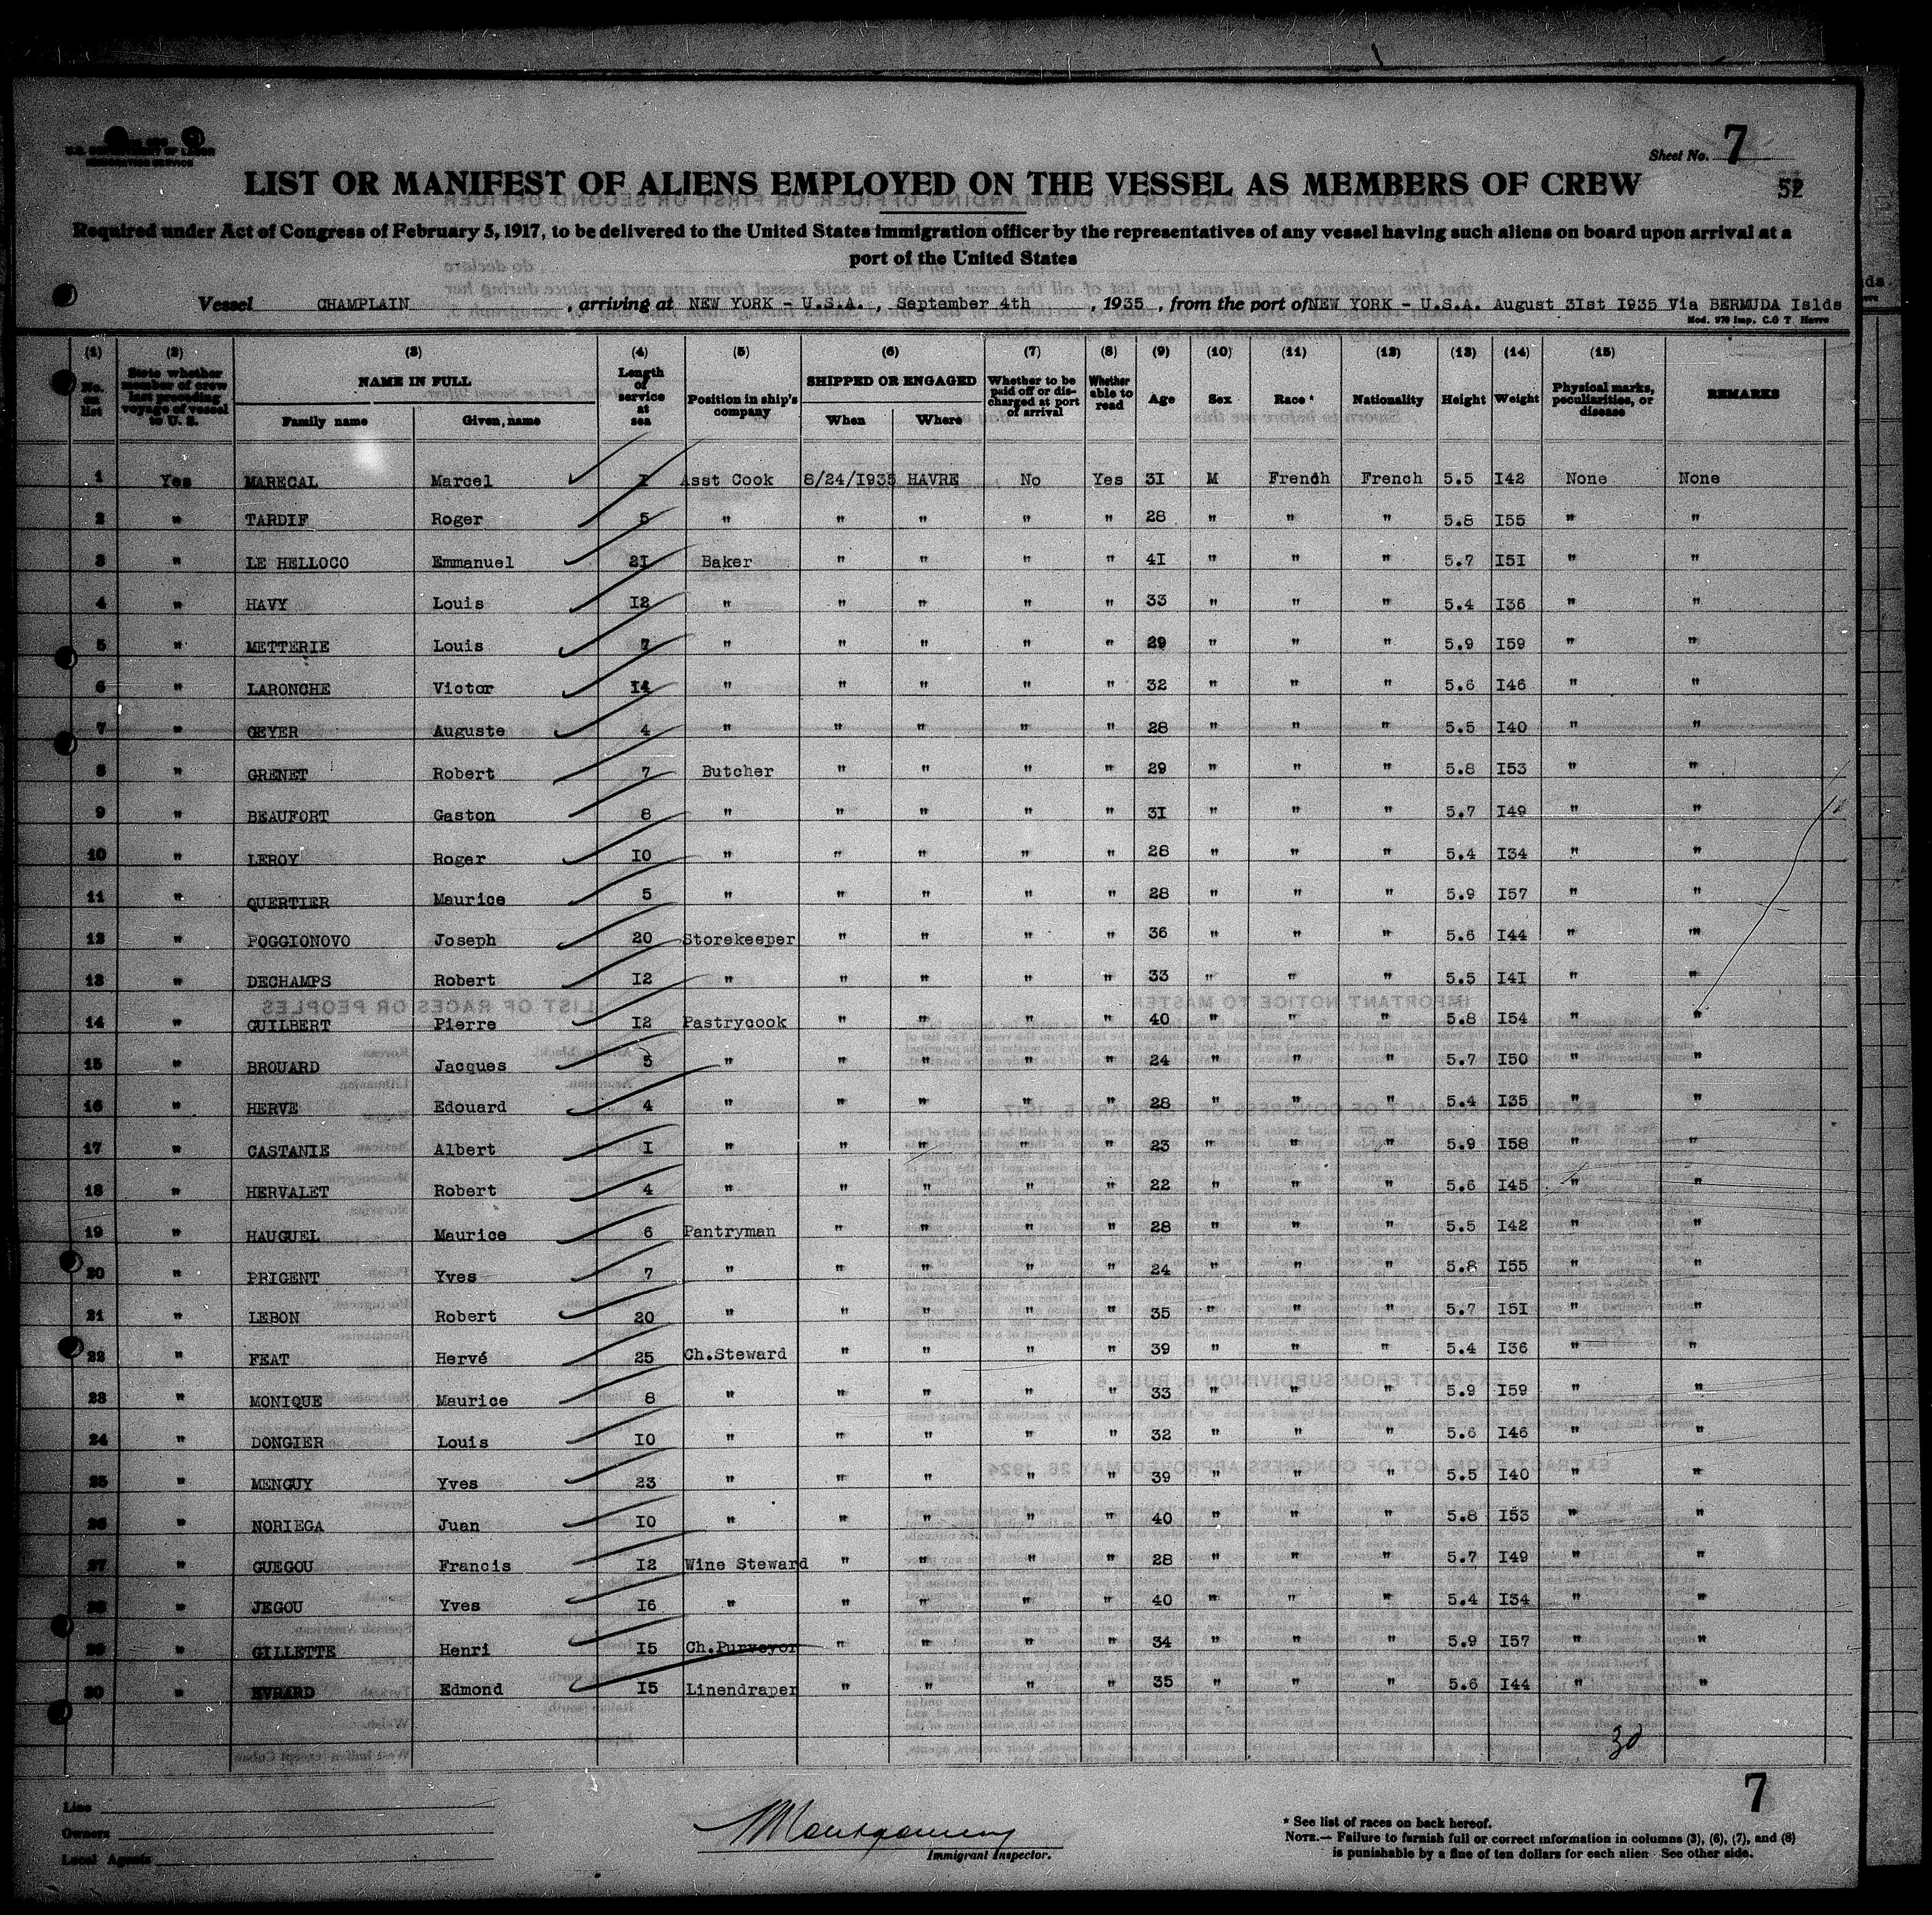 Sheet No. 7
LIST OR MANIFEST OF ALIENS EMPLOYED ON THE VESSEL AS MEMBERS OF CREW
52
Required under Act of Congress of February 5, 1917, to be delivered to the United States immigration officer by the representatives of any vessel having such aliens on board upon arrival at a
port of the United States
Vessel CHAMPLAIN, arriving at NEW YORK - U.S.A., September 4th, 1935, from the port of NEW YORK - U.S.A. August 3Ist I935 Via BERMUDA Islds
Mod. 970 Imp. C.G T Havre
(1) (2) (3) (4) (5) (6) (7) (8) (9) (10) (11) (12) (13) (14) (15)
No. on list State whether member of crew last preceding voyage of vessel to U. S. NAME IN FULL Family name Given name Length of service at sea Position in ship's company SHIPPED OR ENGAGED When Where Whether to be paid off or discharged at port of arrival Whether able to read Age Sex Race * Nationality Height Weight Physical marks, peculiarities, or disease REMARKS
1 Yes MARECAL Marcel I Asst Cook 8/24/I935 HAVRE No Yes 3I M French French 5.5 I42 None None
2 " TARDIF Roger 5 " " " " " 28 " " " 5.8 I55 " "
3 " LE HELLOCO Emmanuel 2I Baker " " " " 4I " " " 5.7 I5I " "
4 " HAVY Louis I2 " " " " " 33 " " " 5.4 I36 " "
5 " METTERIE Louis 7 " " " " " 29 " " " 5.9 I59 " "
6 " LARONCHE Victor I4 " " " " " 32 " " " 5.6 I46 " "
7 " GEYER Auguste 4 " " " " " 28 " " " 5.5 I40 " "
8 " GRENET Robert 7 Butcher " " " " 29 " " " 5.8 I53 " "
9 " BEAUFORT Gaston 8 " " " " " 3I " " " 5.7 I49 " "
10 " LEROY Roger I0 " " " " " 28 " " " 5.4 I34 " "
11 " QUERTIER Maurice 5 " " " " " 28 " " " 5.9 I57 " "
12 " POGGIONOVO Joseph 20 Storekeeper " " " " 36 " " " 5.6 I44 " "
13 " DECHAMPS Robert I2 " " " " " 33 " " " 5.5 I4I " "
14 " GUILBERT Pierre I2 Pastrycook " " " " 40 " " " 5.8 I54 " "
15 " BROUARD Jacques 5 " " " " " 24 " " " 5.7 I50 " "
16 " HERVE Edouard 4 " " " " " 28 " " " 5.4 I35 " "
17 " CASTANIE Albert I " " " " " 23 " " " 5.9 I58 " "
18 " HERVALET Robert 4 " " " " " 22 " " " 5.6 I45 " "
19 " HAUGUEL Maurice 6 Pantryman " " " " 28 " " " 5.5 I42 " "
20 " PRIGENT Yves 7 " " " " " 24 " " " 5.8 I55 " "
21 " LEBON Robert 20 " " " " " 35 " " " 5.7 I5I " "
22 " FEAT Hervé 25 Ch.Steward " " " " 39 " " " 5.4 I36 " "
23 " MONIQUE Maurice 8 " " " " " 33 " " " 5.9 I59 " "
24 " DONGIER Louis I0 " " " " " 32 " " " 5.6 I46 " "
25 " MENGUY Yves 23 " " " " " 39 " " " 5.5 I40 " "
26 " NORIEGA Juan I0 " " " " " 40 " " " 5.8 I53 " "
27 " GUEGOU Francis I2 Wine Steward " " " " 28 " " " 5.7 I49 " "
28 " JEGOU Yves I6 " " " " " 40 " " " 5.4 I34 " "
29 " GILLETTE Henri I5 Ch.Purveyor " " " " 34 " " " 5.9 I57 " "
30 " EVRARD Edmond I5 Linendraper " " " " 35 " " " 5.6 I44 " "
30
7
Line
Owners
Local Agents
Montgomery
Immigrant Inspector.
* See list of races on back hereof.
NOTE.— Failure to furnish full or correct information in columns (3), (6), (7), and (8)
is punishable by a fine of ten dollars for each alien See other side.